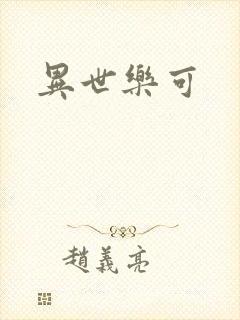 異世樂可
趙義亮